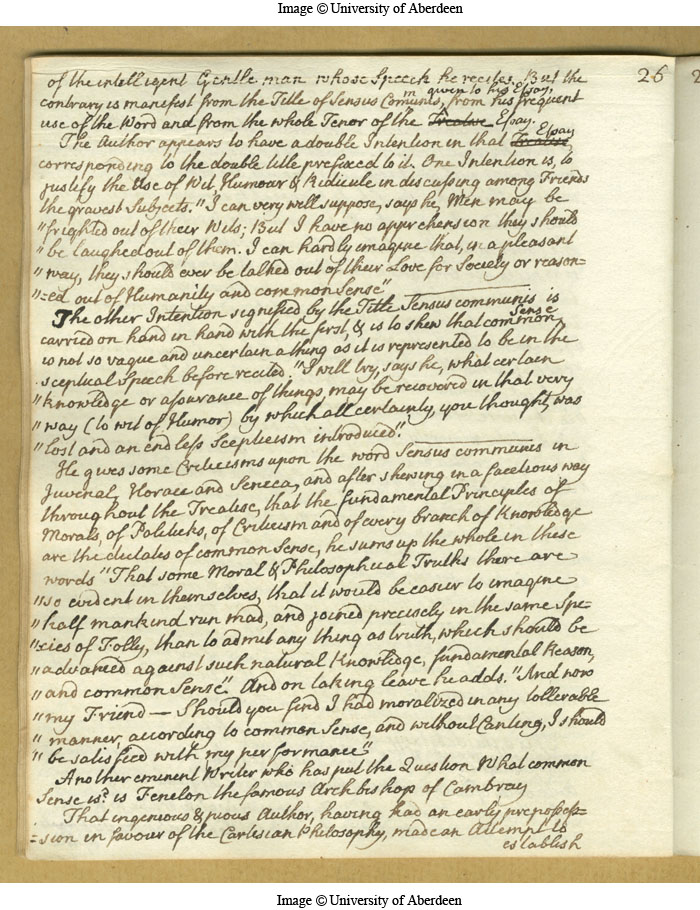 Image © University of Aberdeen
26
of the intelligent Gentle man whose Speech he recites. But the
contrary is manifest from the Title of Sensus Communis, given to his Essay, from his frequent
use of the Word and from the whole Tenor of the Treatise Essay.
The Author appears to have a double Intention in that Treatise Essay
corresponding to the double title prefixed to it. One Intention is, to
justify the Use of Wit, Humour & Ridicule in discussing among Friends
the gravest Subjects. "I can very well suppose, says he, Men may be
"frighted out of their Wits; But I have no apprehension they should
"be laughed out of them. I can hardly imagine that, in a pleasant
"way, they should ever be talked out of their Love for Society or reason=
"=ed out of Humanity and common Sense"
The other Intention signified by the Title Sensus communis is
carried on hand in hand with the first, & is to shew that common Sense
is not so vague and uncertain a thing as it is represented to be in the
sceptical Speech before recited. "I will try, says he, what certain
"knowledge or assurance of things, may be recovered in that very
"way (to wit of Humor) by which all certainty, you thought, was
"lost and an endless Scepticism introduced".
He gives some Criticisms upon the word Sensus communis in
Juvenal, Horace and Seneca, and after shewing in a facetious way
throughout the Treatise, that the fundamental Principles of
Morals, of Politicks, of Criticism and of every branch of Knowledge
are the dictates of common Sense, he sums up the whole in these
words "That some Moral & Philosophical Truths there are
"so evident in themselves, that it would be easier to imagine
"half mankind run mad, and joined precisely in the same Spe=
"=cies of Folly, than to admit any thing as truth, which should be
"advanced against such natural Knowledge, fundamental Reason,
"and common Sense". And on taking leave he adds. "And now
"my Friend — Should you find I had moralized in any tollerable
"manner, according to common Sense, and without Canting, I should
"be satisfied with my performance"
Another eminent Writer who has put the Question What common
Sense is? is Fenelon the famous Archbishop of Cambray
That ingenious & pious Author, having had an early preposses=
=sion in favour of the Cartesian Philosophy, made an Attempt to
establish
Image © University of Aberdeen